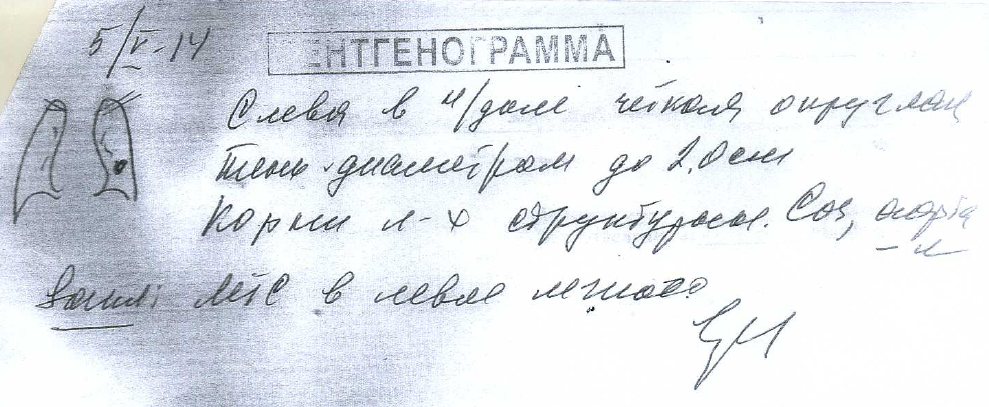 5/V-14
РЕНТГЕНОГРАММА
Слева в н/доле чёткая округлая
тень диаметром до 2,0 см
Корни л-х структурны. Cor, аорта
-н
Закл: МТС в левое легкое